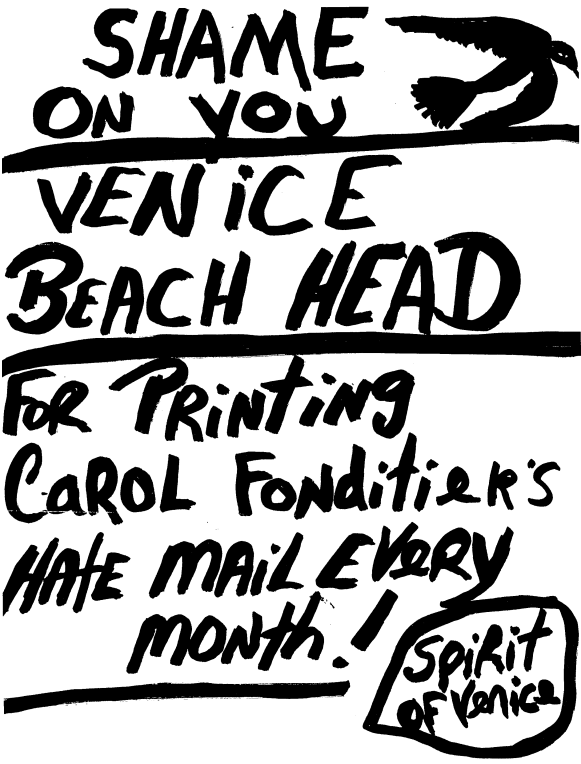 SHAME
ON YOU
VENiCE
BEACH HEAD
FOR PRiNtiNg
CaROL FONditieR's
HAtE MAiL EVeRy
MONth!
SpiRit
OF Venice